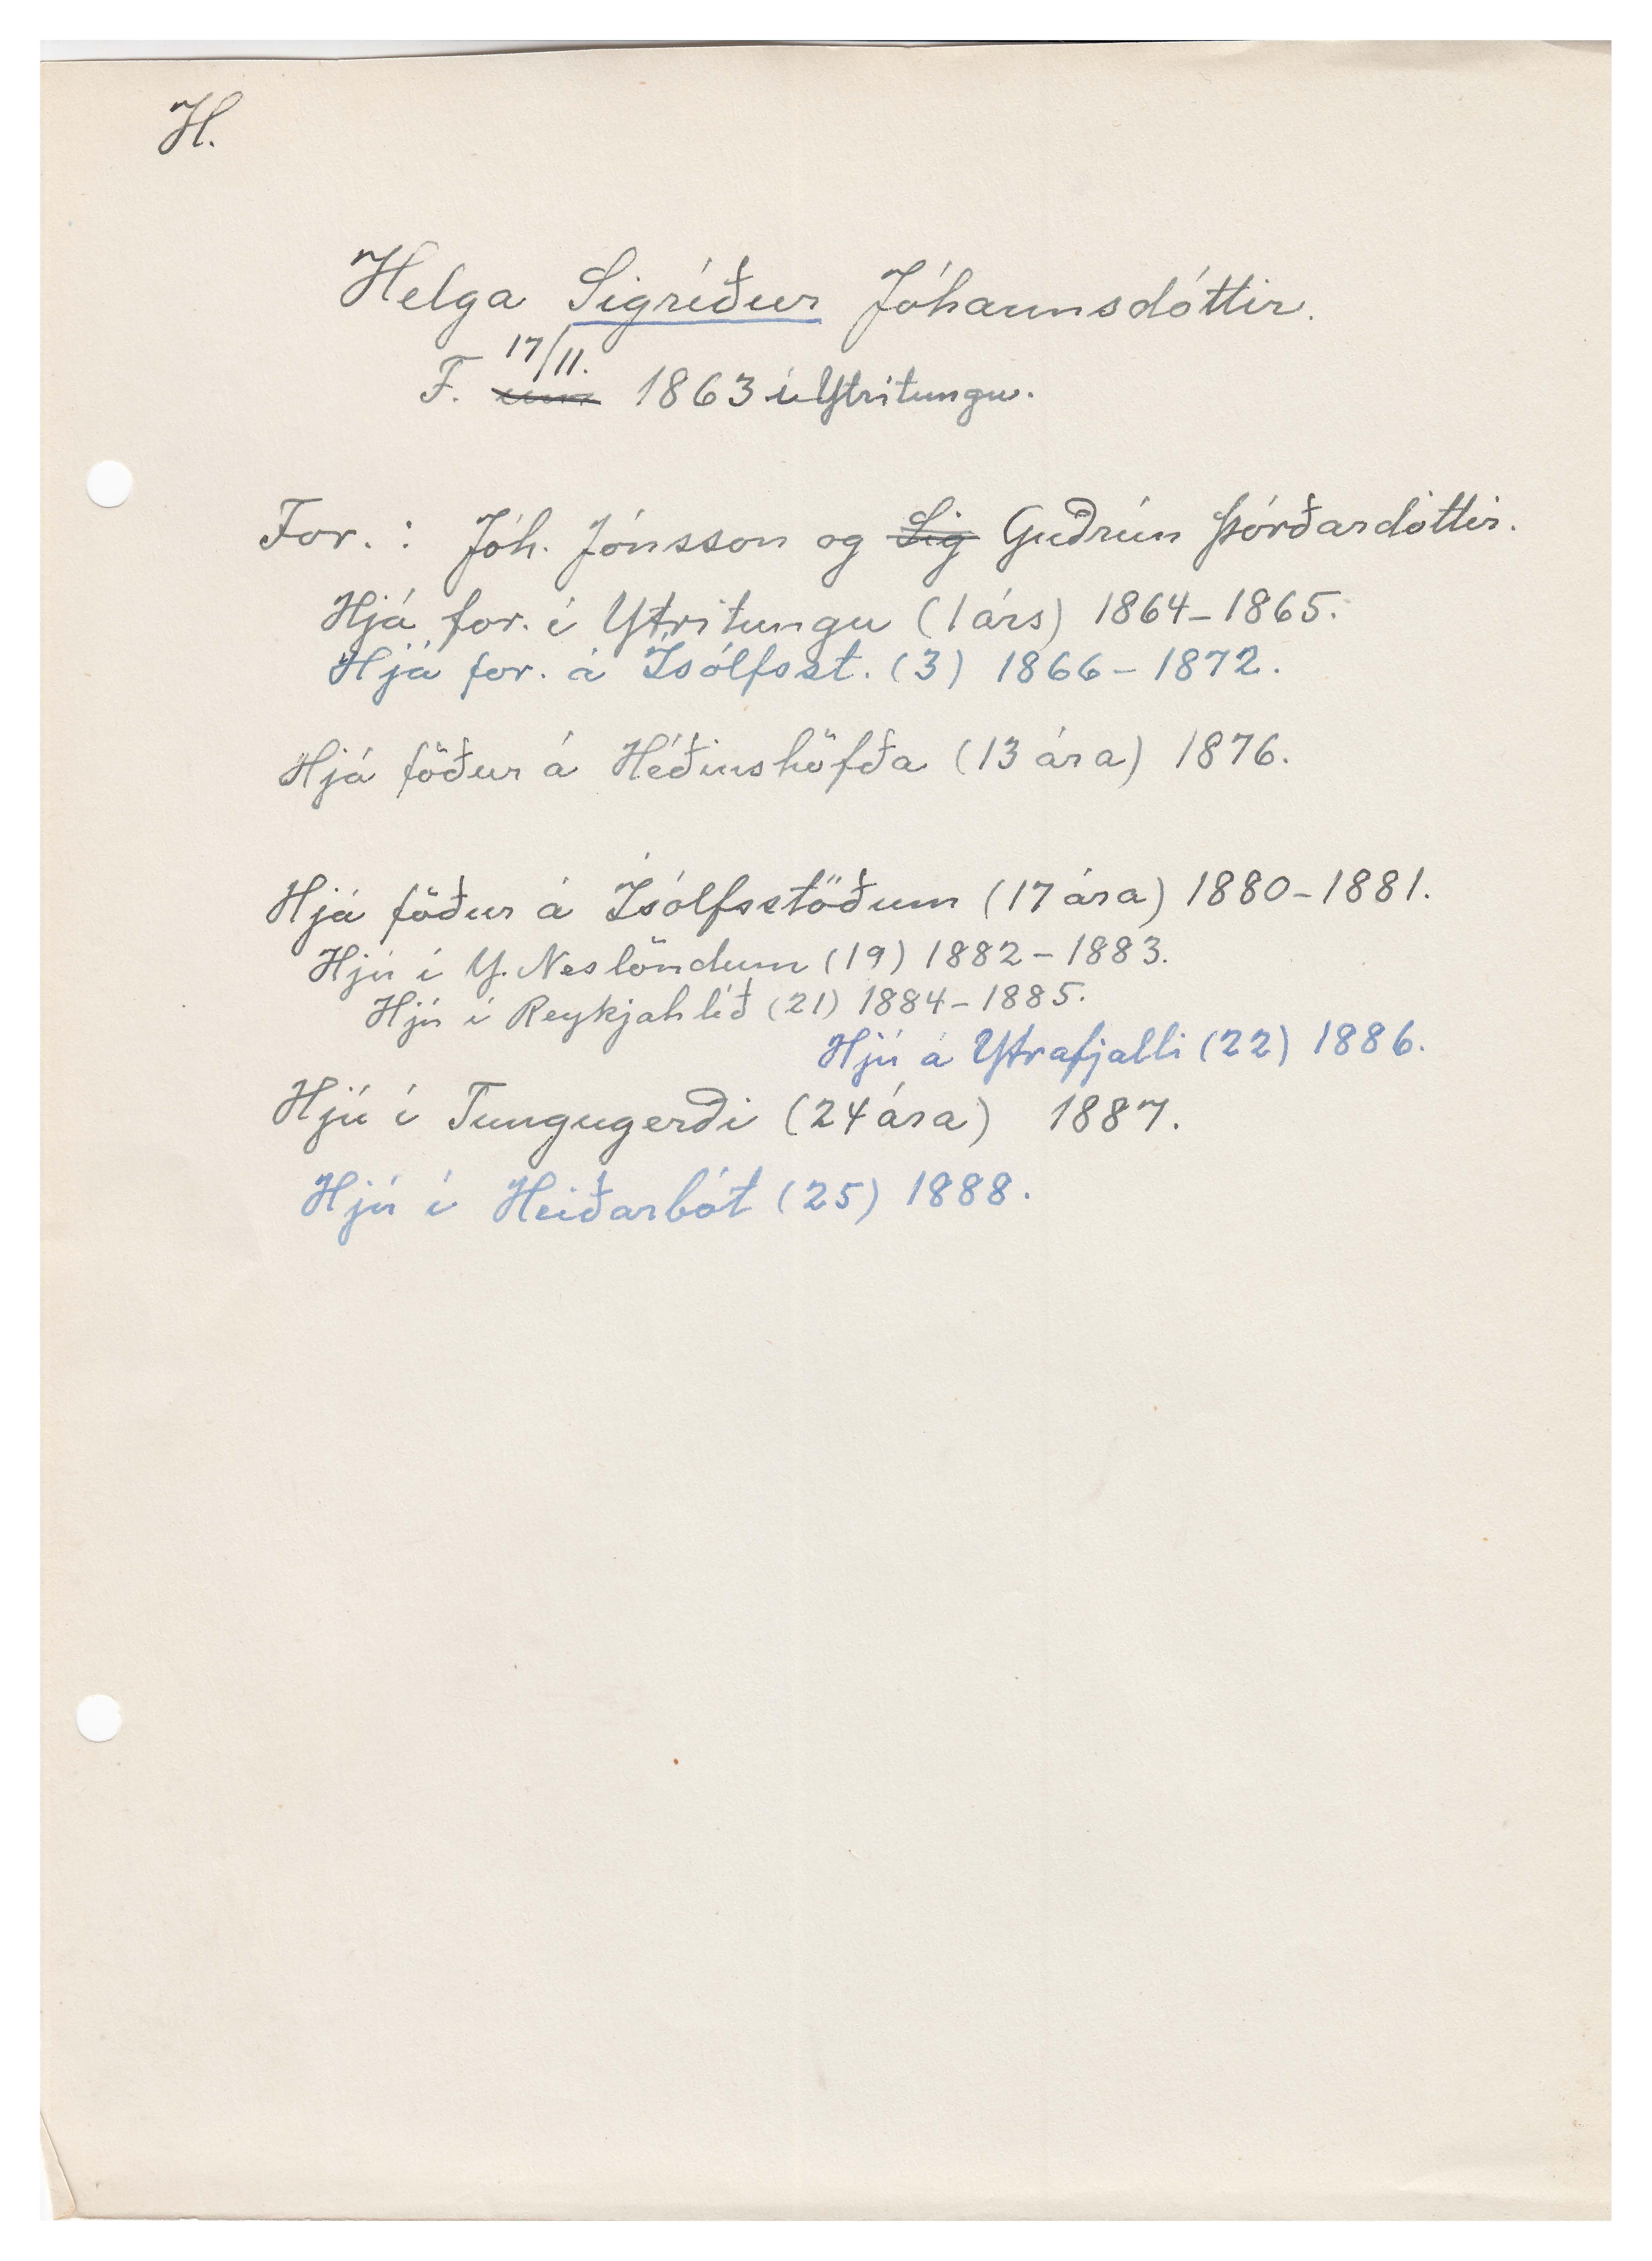 H.
Helga Sigríður Jóhannsdóttir.
17/11.
F. 1863 í Ytritungu.
For. : Jóh. Jónsson og Sig Guðrún Þórðardóttir.
Hjá for. í Ytritungu (1 árs) 1864-1865.
Hjá for. á Ísólfsst. (3) 1866-1872.
Hjá föður á Héðinshöfða (13 ára) 1876.
Hjá föður á Ísólfsstöðum (17 ára) 1880-1881.
Hjú í Y. Neslöndum (19) 1882-1883.
Hjú í Reykjahlíð (21) 1884-1885.
Hjú á Ytrafjalli (22) 1886.
Hjú í Tungugerði (24 ára) 1887.
Hjú í Heiðarbót (25) 1888.